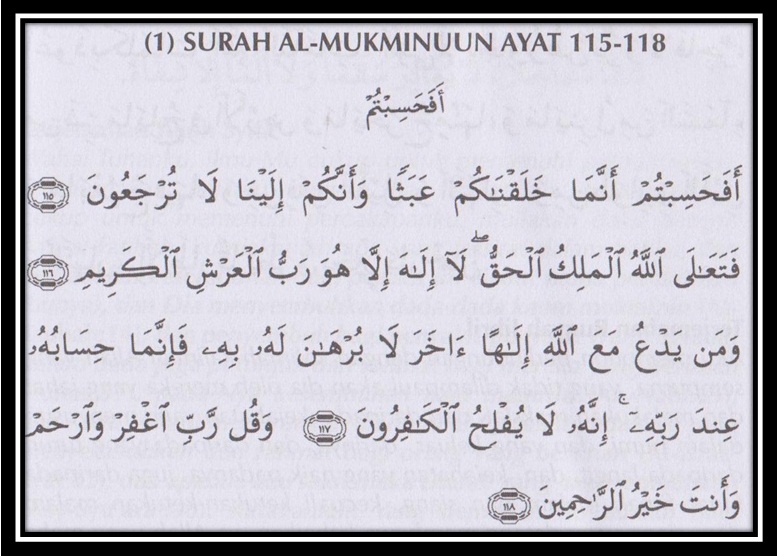 (1) SURAH AL-MUKMINUUN AYAT 115-118
أَفَحَسِبْتُمْ
أَفَحَسِبْتُمْ أَنَّمَا خَلَقْنَٰكُمْ عَبَثًا وَأَنَّكُمْ إِلَيْنَا لَا تُرْجَعُونَ ١١٥
فَتَعَٰلَى ٱللَّهُ ٱلْمَلِكُ ٱلْحَقُّ لَآ إِلَٰهَ إِلَّا هُوَ رَبُّ ٱلْعَرْشِ ٱلْكَرِيمِ ١١٦
وَمَن يَدْعُ مَعَ ٱللَّهِ إِلَٰهًا ءَاخَرَ لَا بُرْهَٰنَ لَهُۥ بِهِۦ فَإِنَّمَا حِسَابُهُۥ
عِندَ رَبِّهِۦٓ ۚ إِنَّهُۥ لَا يُفْلِحُ ٱلْكَٰفِرُونَ ١١٧ وَقُل رَّبِّ ٱغْفِرْ وَٱرْحَمْ
وَأَنتَ خَيْرُ ٱلرَّٰحِمِينَ ١١٨